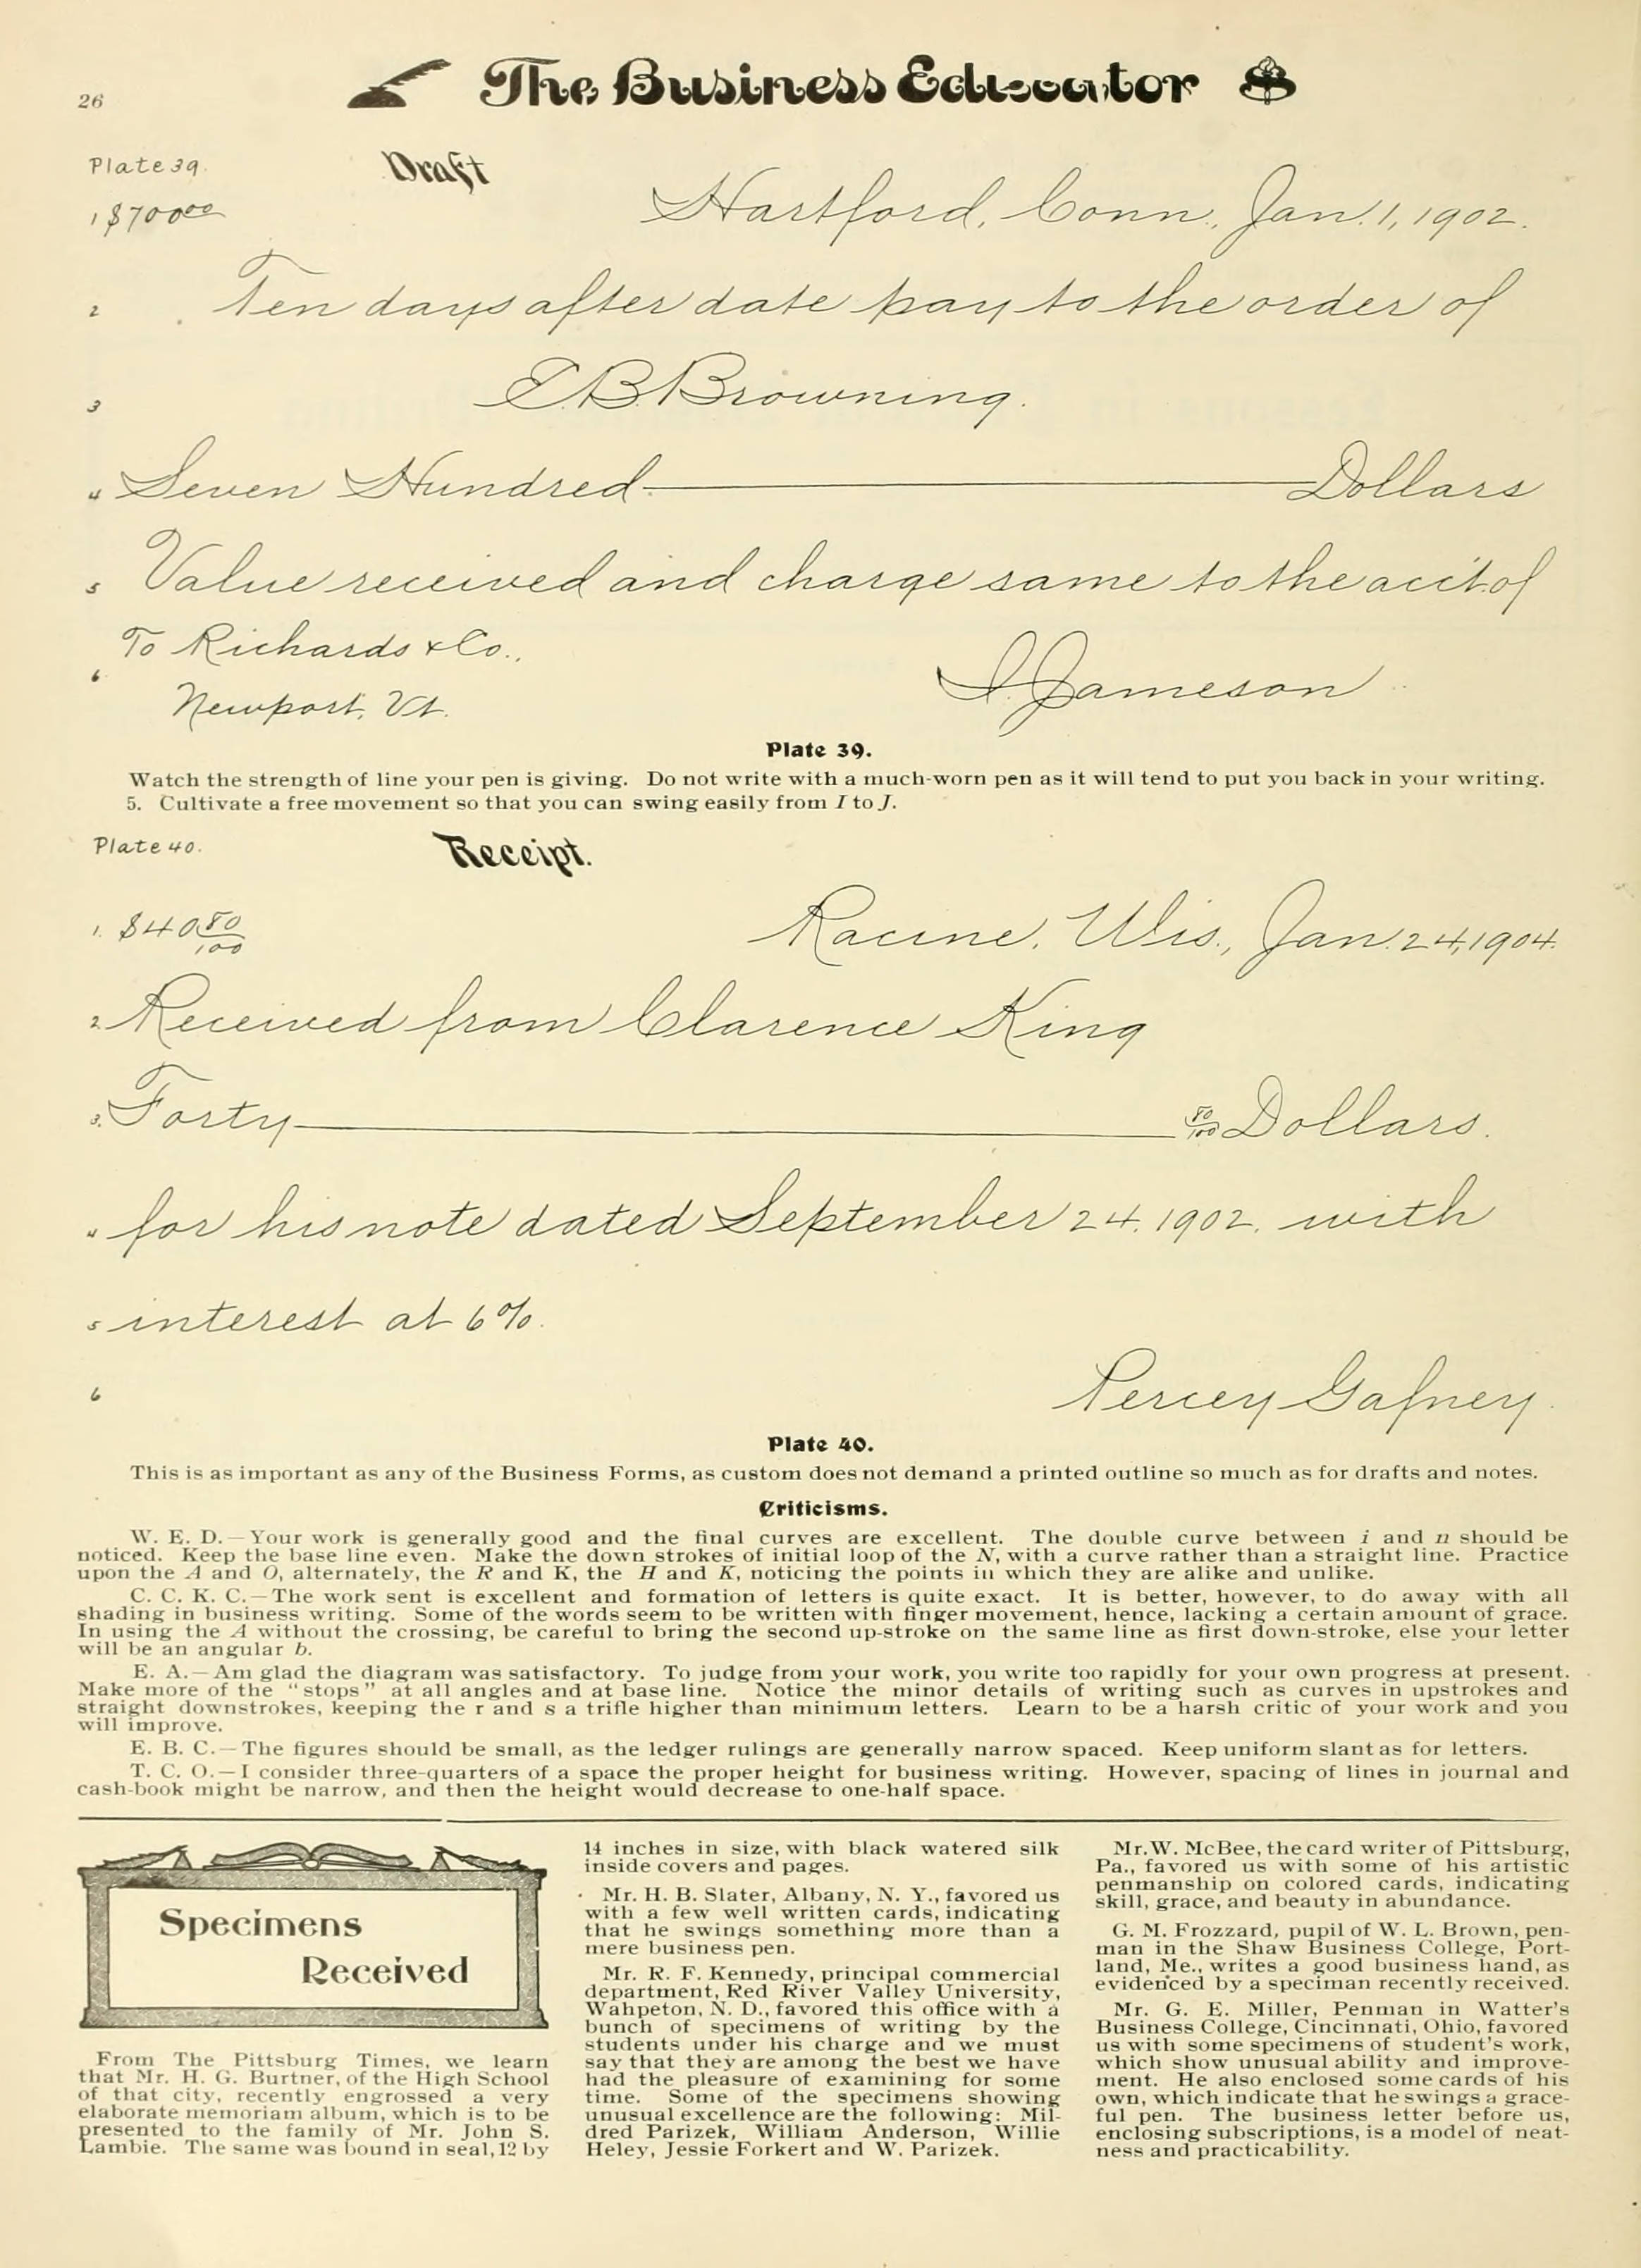 26
The Business Educator
Plate 39.
Draft
1 $700 00
Hartford, Conn., Jan. 1, 1902.
2 Ten days after date pay to the order of
3 E.B. Browning.
4 Seven Hundred Dollars
5 Value received and charge same to the acc't. of
To Richards & Co.,
6 I. Jameson
Newport, Vt.
Plate 39.
Watch the strength of line your pen is giving. Do not write with a much-worn pen as it will tend to put you back in your writing.
5. Cultivate a free movement so that you can swing easily from I to J.
Plate 40.
Receipt.
1. $40 80/100
Racine, Wis., Jan. 24, 1904.
2 Received from Clarence King
3. Forty 80/100 Dollars.
4 for his note dated September 24. 1902. with
5 interest at 6%.
6 Percey Gafney.
Plate 40.
This is as important as any of the Business Forms, as custom does not demand a printed outline so much as for drafts and notes.
Criticisms.
W. E. D.—Your work is generally good and the final curves are excellent. The double curve between i and n should be
noticed. Keep the base line even. Make the down strokes of initial loop of the N, with a curve rather than a straight line. Practice
upon the A and O, alternately, the R and K, the H and K, noticing the points in which they are alike and unlike.
C. C. K. C.—The work sent is excellent and formation of letters is quite exact. It is better, however, to do away with all
shading in business writing. Some of the words seem to be written with finger movement, hence, lacking a certain amount of grace.
In using the A without the crossing, be careful to bring the second up-stroke on the same line as first down-stroke, else your letter
will be an angular b.
E. A.—Am glad the diagram was satisfactory. To judge from your work, you write too rapidly for your own progress at present.
Make more of the "stops" at all angles and at base line. Notice the minor details of writing such as curves in upstrokes and
straight downstrokes, keeping the r and s a trifle higher than minimum letters. Learn to be a harsh critic of your work and you
will improve.
E. B. C.—The figures should be small, as the ledger rulings are generally narrow spaced. Keep uniform slant as for letters.
T. C. O.—I consider three-quarters of a space the proper height for business writing. However, spacing of lines in journal and
cash-book might be narrow, and then the height would decrease to one-half space.
Specimens
Received
From The Pittsburg Times, we learn
that Mr. H. G. Burtner, of the High School
of that city, recently engrossed a very
elaborate memoriam album, which is to be
presented to the family of Mr. John S.
Lambie. The same was bound in seal, 12 by
14 inches in size, with black watered silk
inside covers and pages.
Mr. H. B. Slater, Albany, N. Y., favored us
with a few well written cards, indicating
that he swings something more than a
mere business pen.
Mr. R. F. Kennedy, principal commercial
department, Red River Valley University,
Wahpeton, N. D., favored this office with a
bunch of specimens of writing by the
students under his charge and we must
say that they are among the best we have
had the pleasure of examining for some
time. Some of the specimens showing
unusual excellence are the following: Mil-
dred Parizek, William Anderson, Willie
Heley, Jessie Forkert and W. Parizek.
Mr. W. McBee, the card writer of Pittsburg,
Pa., favored us with some of his artistic
penmanship on colored cards, indicating
skill, grace, and beauty in abundance.
G. M. Frozzard, pupil of W. L. Brown, pen-
man in the Shaw Business College, Port-
land, Me., writes a good business hand, as
evidenced by a speciman recently received.
Mr. G. E. Miller, Penman in Watter's
Business College, Cincinnati, Ohio, favored
us with some specimens of student's work,
which show unusual ability and improve-
ment. He also enclosed some cards of his
own, which indicate that he swings a grace-
ful pen. The business letter before us,
enclosing subscriptions, is a model of neat-
ness and practicability.